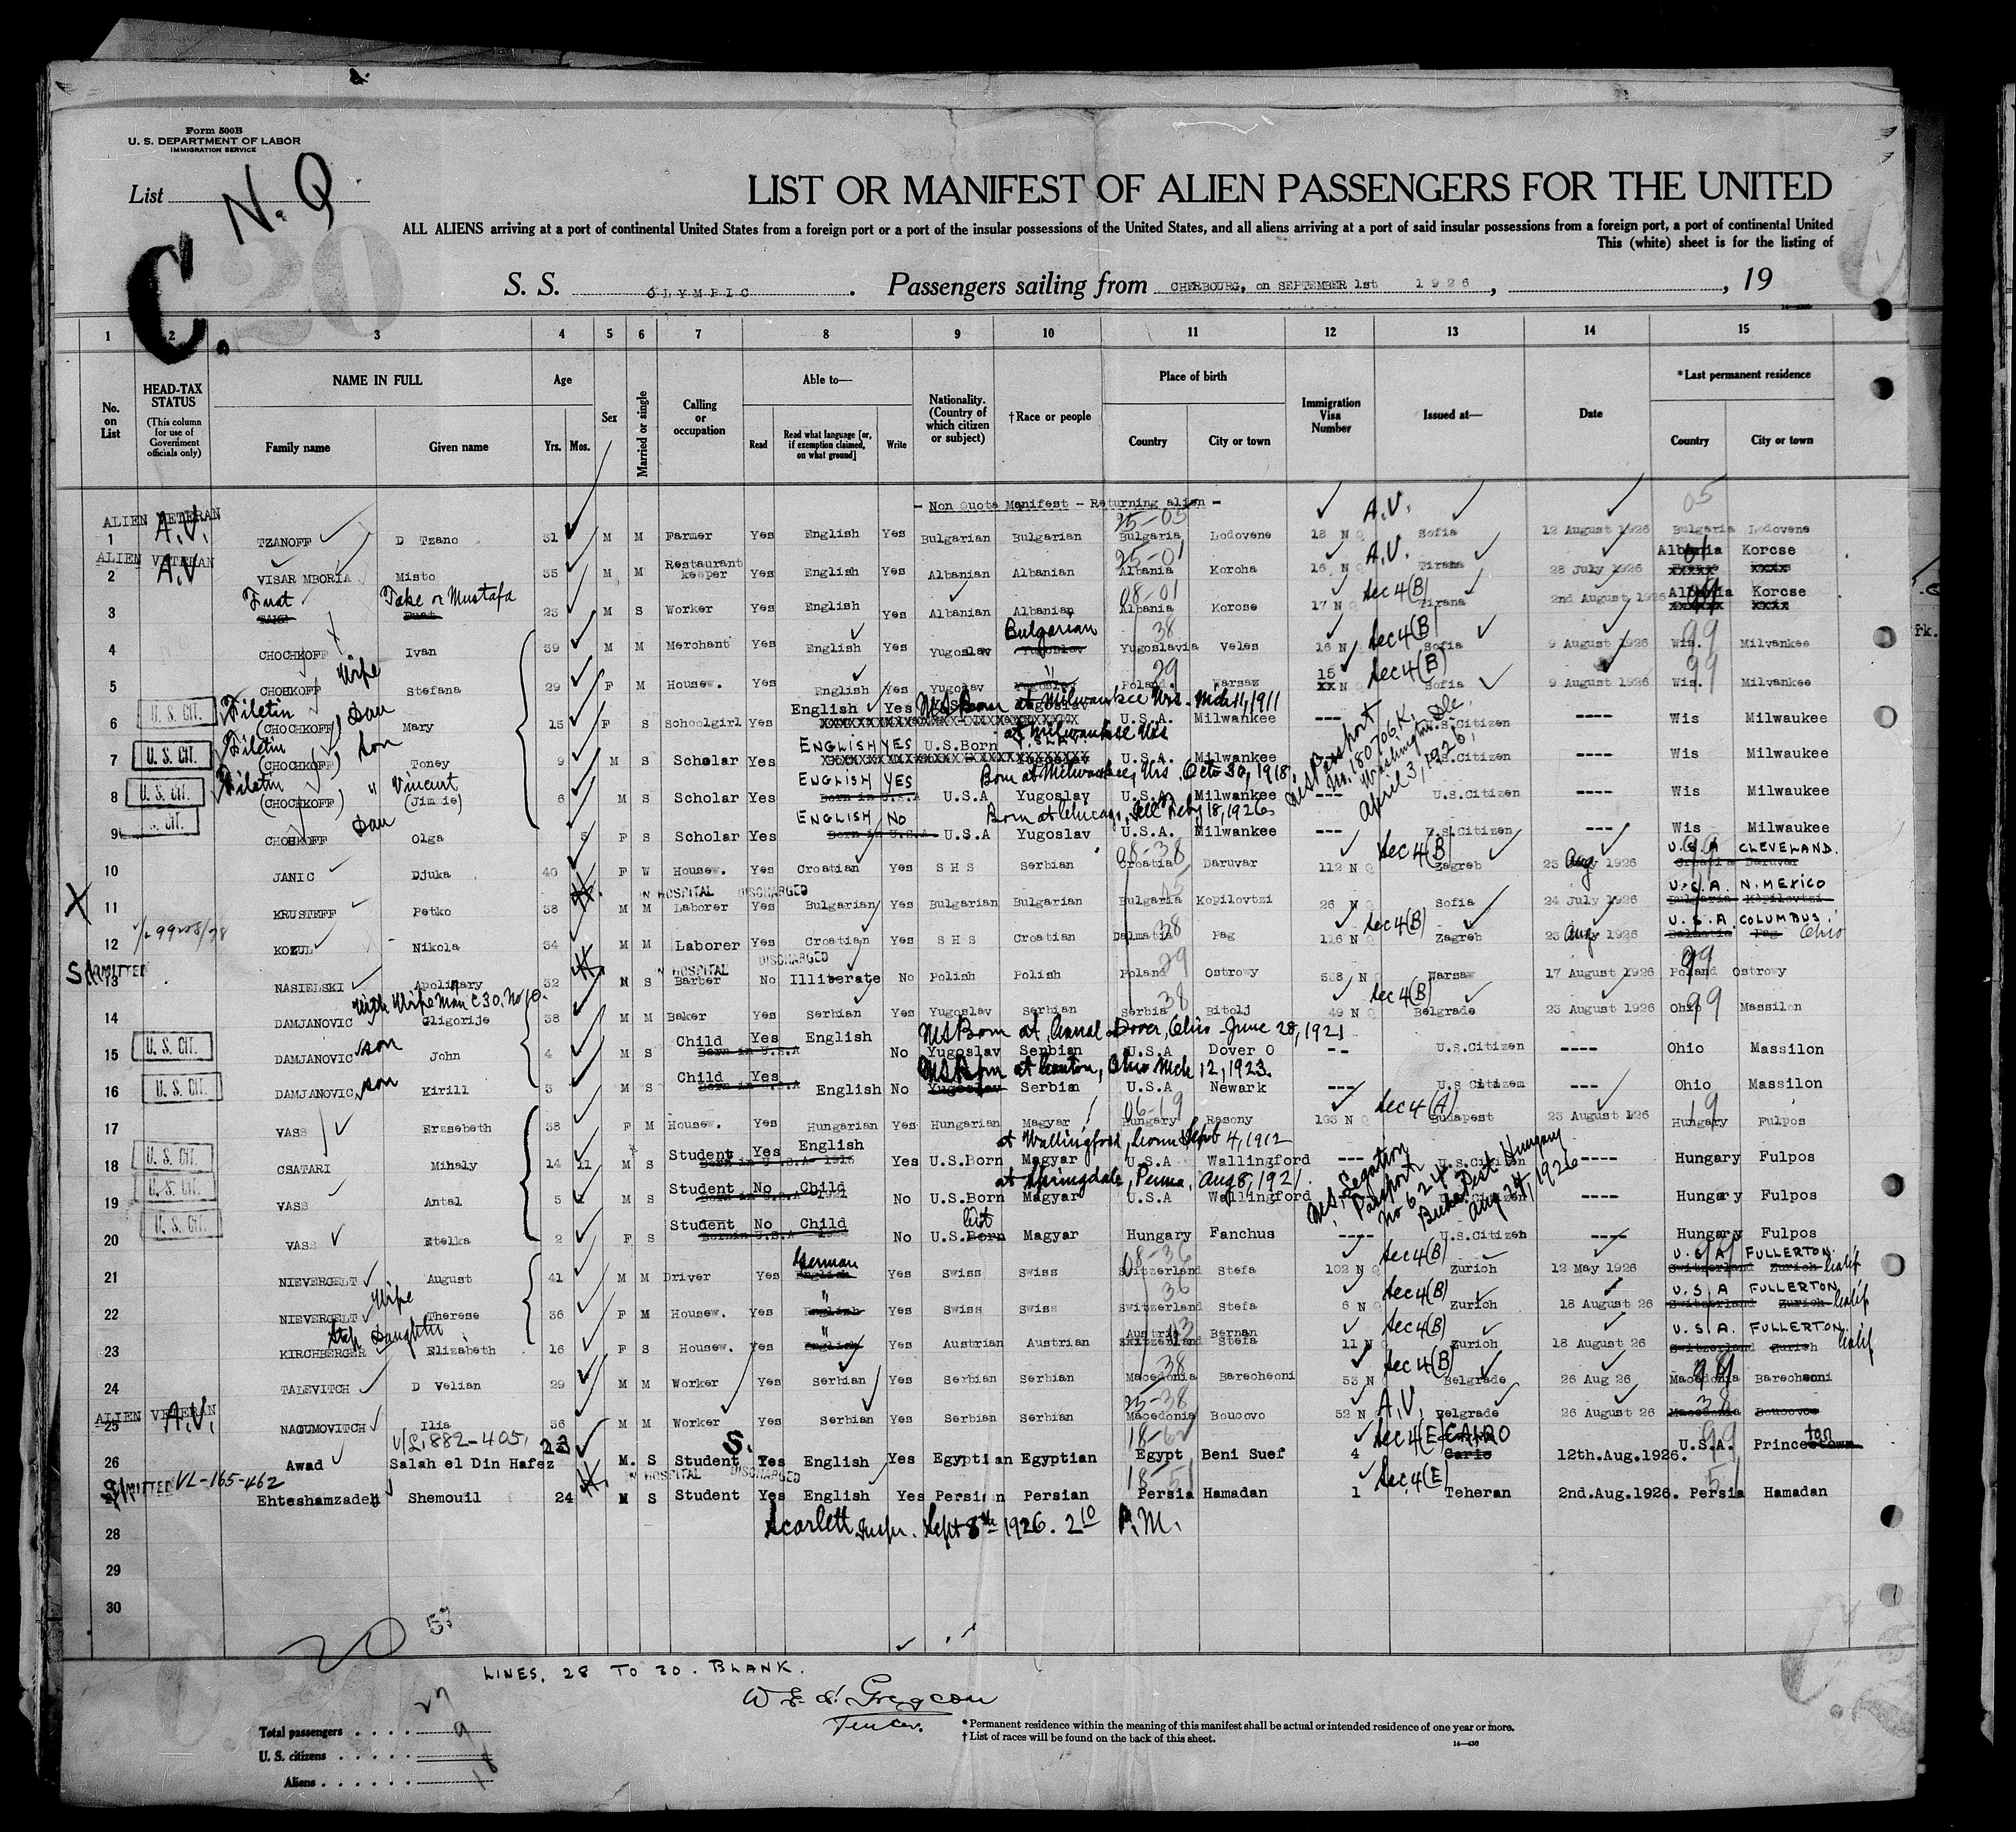 Form 500B
U. S. DEPARTMENT OF LABOR
IMMIGRATION SERVICE
List N. Q.
C. 20
LIST OR MANIFEST OF ALIEN PASSENGERS FOR THE UNITED
ALL ALIENS arriving at a port of continental United States from a foreign port or a port of the insular possessions of the United States, and all aliens arriving at a port of said insular possessions from a foreign port, a port of continental United
This (white) sheet is for the listing of
S. S. OLYMPIC. Passengers sailing from CHERBOURG, on SEPTEMBER 1st 1926, , 19
1 2 3 4 5 6 7 8 9 10 11 12 13 14 15
No. on List
HEAD-TAX STATUS (This column for use of Government officials only)
NAME IN FULL Family name Given name
Age Yrs. Mos.
Sex
Married or single
Calling or occupation
Able to— Read Read what language [or, if exemption claimed, on what ground] Write
Nationality. (Country of which citizen or subject)
†Race or people
Place of birth Country City or town
Immigration Visa Number
Issued at—
Date
*Last permanent residence Country City or town
- Non Quota Manifest - Returning alien -
ALIEN VETERAN A.V. 25-05 A.V. 05
1 TZANOFF D Tzano 31 M M Farmer Yes English Yes Bulgarian Bulgarian Bulgaria Lodovene 18 N Q Sofia 12 August 1926 Bulgaria Lodovene
ALIEN VETERAN A.V 25-01 A.V.
2 VISAR MBORIA Misto 35 M M Restaurant keeper Yes English Yes Albanian Albanian Albania Korcha 16 N Q Tirana 28 July 1926 Albania Korcse
Fuat Take or Mustafa 08-01 Sec 4(B)
3 23 M S Worker Yes English Yes Albanian Albanian Albania Korcse 17 N Q Tirana 2nd August 1926 Albania Korcse
Bulgarian 38 Sec 4(B) 99
4 CHOCHKOFF Ivan 39 M M Merchant Yes English Yes Yugoslav Yugoslav Yugoslavia Veles 16 N Sofia 9 August 1926 Wis. Milvankee
Wife " 29 15 Sec 4(B) 99
5 CHOCHKOFF Stefana 29 F M Housew. Yes English Yes Yugoslav Yugoslav Poland Warsaz XX N Q Sofia 9 August 1926 Wis. Milvankee
U. S. CIT. Filetin Dau English Yes US Born at Milwaukee Wis. Mch 11, 1911
6 (CHOCHKOFF) Mary 15 F S Schoolgirl Yes U.S.A. Milwankee --- U.S.Citizen ---- Wis Milwaukee
U. S. CIT. Filetin Son ENGLISH YES U.S.Born at Milwaukee Wis
7 (CHOCHKOFF) Toney 9 M S Scholar Yes U.S.A. Milwankee U.S.Citizen ---- Wis Milwaukee
U. S. CIT. Filetin " Vincent ENGLISH YES Born at Milwaukee, Wis. Octo 30, 1918
8 (CHOCHKOFF) (Jimmie) 6 M S Scholar Yes Born in U.S.A U.S.A Yugoslav U.S.A. Milwankee --- U.S.Citizen ---- Wis Milwaukee
S. CIT. Dau ENGLISH NO Born at Chicago, Ill Feby 18, 1926
9 CHOCHKOFF Olga 5 F S Scholar Yes Born in U.S.A U.S.A Yugoslav U.S.A. Milwankee --- U.S.Citizen ---- Wis Milwaukee
Passport No. 180706K. Washington D.C. April 3, 1926,
08-38 Sec 4(B) U.S.A CLEVELAND.
10 JANIC Djuka 40 F W Housew. Yes Croatian Yes S H S Serbian Croatia Daruvar 112 N Q Zagreb 23 Aug 1926 Croatia Daruvar
X IN HOSPITAL DISCHARGED 05 U.S.A. N. MEXICO
11 KRUSTEFF Petko 38 M M Laborer Yes Bulgarian Yes Bulgarian Bulgarian Bulgaria Kopilovtzi 26 N Q Sofia 24 July 1926 Bulgaria Kopilovtzi
38 Sec 4(B) U.S.A. COLUMBUS. Ohio
12 KOZUL Nikola 34 M M Laborer Yes Croatian Yes S H S Croatian Dalmatia Pag 116 N Q Zagreb 23 Aug 1926 Dalmatia Pag
ADMITTED IN HOSPITAL DISCHARGED 29 99
13 NASIELSKI Apolinary 32 M S Barber No Illiterate No Polish Polish Poland Ostrowy 538 N Q Warsaw 17 August 1926 Poland Ostrowy
With Wife Man C30. No 10. 38 Sec 4(B)
14 DAMJANOVIC Gligorije 38 M M Baker Yes Serbian Yes Yugoslav Serbian Serbia Bitolj 49 N Q Belgrade 23 August 1926 Ohio 99 Massilon
U. S. CIT. US Born at Canal Dover, Ohio - June 28, 1921
15 DAMJANOVIC Son John 4 M S Child Born in U.S.A Yes English No Yugoslav Serbian U.S.A Dover O -- U.S.Citizen ---- Ohio Massilon
U. S. CIT. US Born at Canton, Ohio Mch 12, 1923.
16 DAMJANOVIC, Son Kirill 3 M S Child Born in U.S.A Yes English No Yugoslav Serbian U.S.A Newark --- U.S Citizem --- Ohio Massilon
06-19 Sec 4(A) 19
17 VASS Erzsebeth 38 F M Housew. Yes Hungarian Yes Hungarian Magyar Hungary Rasony 103 N Q Budapest 23 August 1926 Hungary Fulpos
U. S. CIT. at Wallingford, Conn Sept 4, 1912
18 CSATARI Mihaly 14 11 M S Student Yes English Yes U.S.Born Magyar U.S.A Wallingford --- U.S.Citizen ---- Hungary Fulpos
U. S. CIT. at Springdale, Penna, Aug 8, 1921.
19 VASS Antal 5 M S Student No Child No U.S.Born Magyar U.S.A Wallingford Citizen ---- Hungary Fulpos
U. S. CIT. Cit
20 VASS Etelka 2 F S Student No Child No U.S.Born Magyar Hungary Fanchus ---- U.S.Citizen ---- Hungary Fulpos
U.S. Legation Passport No 624 Buda Pest Hungary Aug 24, 1926
German 08-36 Sec 4(B) U.S.A FULLERTON. Calif
21 NIEVERGELT August 41 M M Driver Yes English Yes Swiss Swiss Switzerland Stefa 102 N Q Zurich 12 May 1926 Switzerland Zurich
Wife " 36 Sec 4(B) U.S.A FULLERTON Calif
22 NIEVERGELT Therese 36 F M Housew. Yes English Yes Swiss Swiss Switzerland Stefa 6 N Q Zurich 18 August 26 Switzerland Zurich
Step Daughter " Austria 03 Bernan Sec 4(B) U.S.A. FULLERTON Calif
23 KIRCHBERGER Elizabeth 16 F S Housew. Yes English Yes Austrian Austrian Switzerland Stefa 11 N Q Zurich 18 August 26 Switzerland Zurich
38 Sec 4(B)
24 TALEVITCH D Velian 29 M M Worker Yes Serbian Yes Serbian Serbian Macedonia Barecheoni 53 N Q Belgrade 26 Aug 26 Macedonia Barecheoni
ALIEN VETERAN A.V. 25-38 A.V. 38
25 NAGUMOVITCH Ilia 36 M M Worker Yes Serbian Yes Serbian Serbian Macedonia Boucovo 52 N Q Belgrade 26 August 26 Macedonia Boucovoe
V/L 882-405, S. Sec 4(E) CAIRO 99 ton
26 Awad Salah el Din Hafez 23 M. S Student Yes English Yes Egyptian Egyptian Egypt Beni Suef 4 Cario 12th.Aug.1926. U.S.A. Princetown
ADMITTED VL-165-462 IN HOSPITAL DISCHARGED 18 51 Sec. 4(E) 51
Ehteshamzadeh Shemouil 24 M S Student Yes English Yes Persian Persian Persia Hamadan 1 Teheran 2nd.Aug.1926. Persia Hamadan
28 Scarlett Inspr. Sept 8th 1926. 2 10 P.M.
29
30
20 53
LINES, 28 TO 30. BLANK.
Total passengers . . . . 27
U. S. citizens . . . . . 9
Aliens . . . . . . 18
* Permanent residence within the meaning of this manifest shall be actual or intended residence of one year or more.
† List of races will be found on the back of this sheet.
14—430